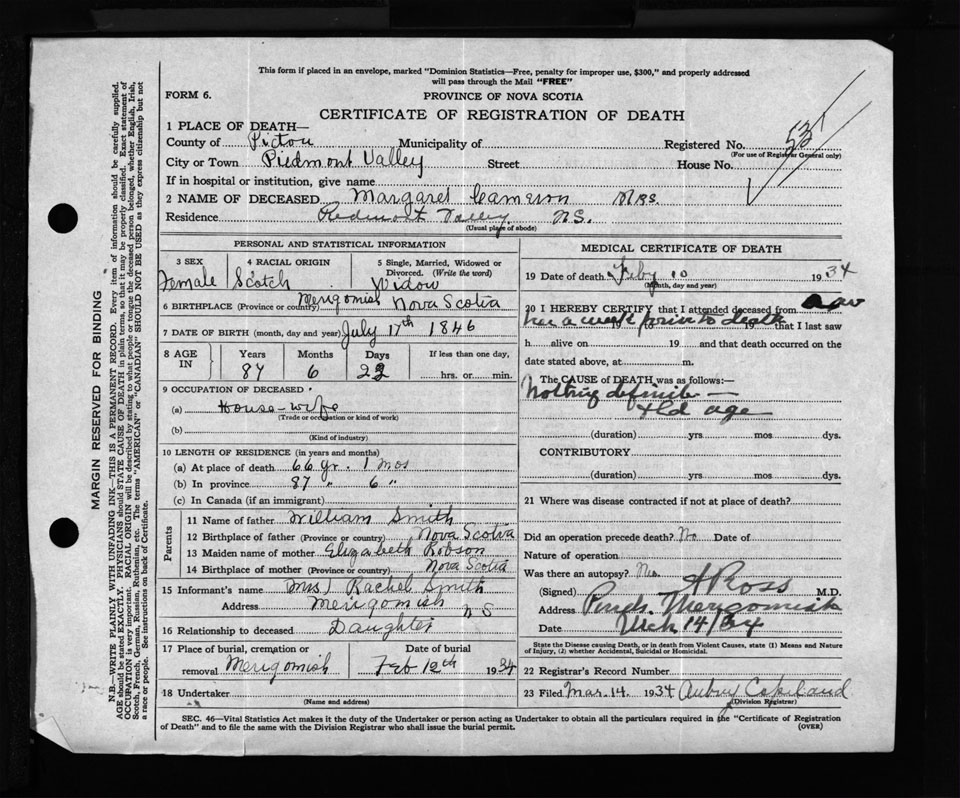 This form if placed in an envelope, marked "Dominion Statistics—Free, penalty for improper use, $300," and properly addressed
will pass through the Mail "FREE"
FORM 6. PROVINCE OF NOVA SCOTIA
CERTIFICATE OF REGISTRATION OF DEATH
1 PLACE OF DEATH—
County of Pictou Municipality of Registered No.
(For use of Registrar General only)
City or Town Piedmont Valley Street House No.
If in hospital or institution, give name
2 NAME OF DECEASED Margaret Cameron Mrs.
Residence Valley NS.
(Usual place of abode)
PERSONAL AND STATISTICAL INFORMATION
3 SEX 4 RACIAL ORIGIN 5 Single, Married, Widowed or
Divorced. (Write the word)
Female Scotch Widow
6 BIRTHPLACE (Province or country) Merigomish Nova Scotia
7 DATE OF BIRTH (month, day and year) July 17th 1846
8 AGE IN Years Months Days If less than one day,
87 6 22 hrs. or min.
9 OCCUPATION OF DECEASED
(a) House-wife
(Trade or occupation or kind of work)
(b)
(Kind of industry)
10 LENGTH OF RESIDENCE (in years and months)
(a) At place of death 66 yr. 1 mos
(b) In province 87 " 6 "
(c) In Canada (if an immigrant)
Parents
11 Name of father William Smith
12 Birthplace of father (Province or country) Nova Scotia
13 Maiden name of mother Elizabeth Robson
14 Birthplace of mother (Province or country) Nova Scotia
15 Informant's name Mrs Rachel Smith
Address Merigomish NS
16 Relationship to deceased Daughter
17 Place of burial, cremation or removal Merigomish Date of burial Feb 12th 1934
18 Undertaker
(Name and address)
MEDICAL CERTIFICATE OF DEATH
19 Date of death Feby 10 1934
(Month, day and year)
20 I HEREBY CERTIFY that I attended deceased from
her a week prior to death 19 that I last saw
h alive on 19 and that death occurred on the
date stated above, at m.
The CAUSE of DEATH was as follows:—
Nothing definite —
old age
(duration) yrs mos dys.
CONTRIBUTORY
(duration) yrs mos dys.
21 Where was disease contracted if not at place of death?
Did an operation precede death? No Date of
Nature of operation
Was there an autopsy? No
(Signed) Ross M.D.
Address Merigomish
Date Mch 14/34
State the Disease causing Death, or in death from Violent Causes, state (1) Means and Nature
of Injury, (2) whether Accidental, Suicidal or Homicidal.
22 Registrar's Record Number
23 Filed Mar. 14. 1934 Aubrey Copeland
(Division Registrar)
SEC. 46—Vital Statistics Act makes it the duty of the Undertaker or person acting as Undertaker to obtain all the particulars required in the "Certificate of Registration
of Death" and to file the same with the Division Registrar who shall issue the burial permit. (OVER)
MARGIN RESERVED FOR BINDING
N.B.—WRITE PLAINLY WITH UNFADING INK—THIS IS A PERMANENT RECORD. Every item of information should be carefully supplied.
AGE should be stated EXACTLY. PHYSICIANS should STATE CAUSE OF DEATH in plain terms, so that it may be properly classified. Exact statement of
OCCUPATION is very important. RACIAL ORIGIN will be described by stating to what people or tongue the deceased person belonged, whether English, Irish,
Scotch, French, German, Russian, Ruthenian, etc. The terms "AMERICAN" or "CANADIAN" SHOULD NOT BE USED as they express citizenship but not
a race or people. See instructions on back of Certificate.